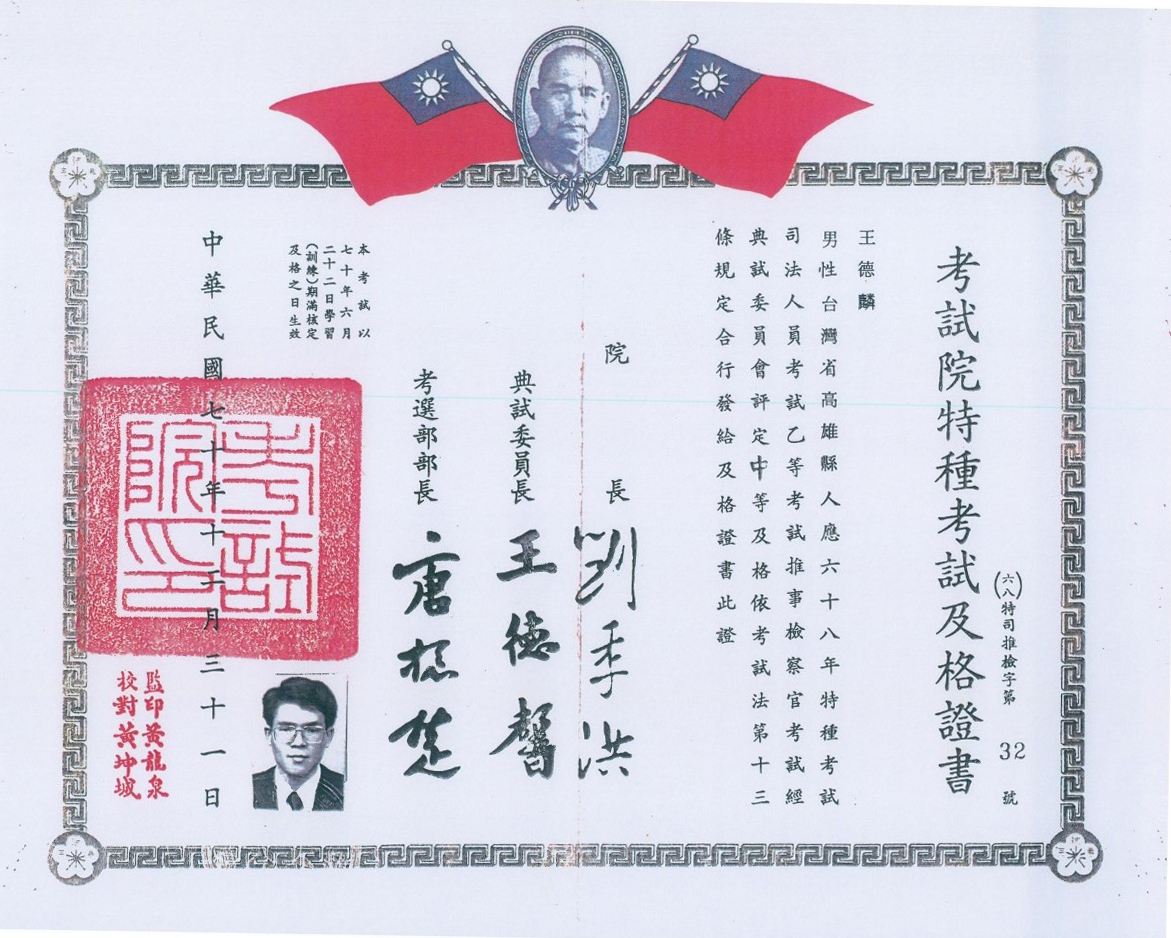 考試院特種考試及格證書
(六八)特司推檢字第 32 號
王德麟
男性台灣省高雄縣人應六十八年特種考試
司法人員考試乙等考試推事檢察官考試經
典試委員會評定中等及格依考試法第十三
條規定合行發給及格證書此證
院長 劉季洪
典試委員長 王德馨
考選部部長 唐振楚
本考試以
七十年六月
二十二日學習
(訓練)期滿核定
及格之日生效
中華民國七十年十二月三十一日
考試院印
監印黃龍泉
校對黃坤城